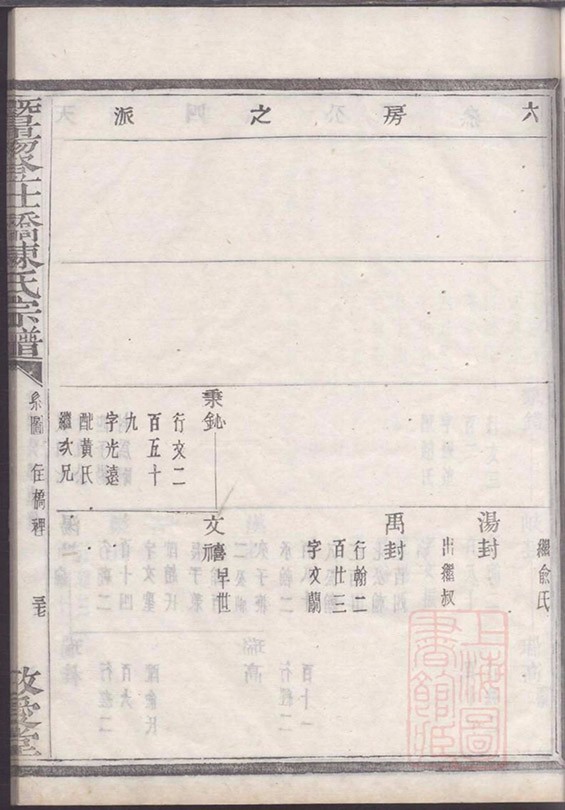 六房之派
繼俞氏
湯封
出繼叔
禹封
行翰二
百廿三
字文蘭
秉鈊
行文二
百五十
九
字光遠
配黃氏
繼次兄
文禱早世
暨陽
仕橋陳氏宗譜
系圖
住橋裡
敬愛堂
上海圖書館